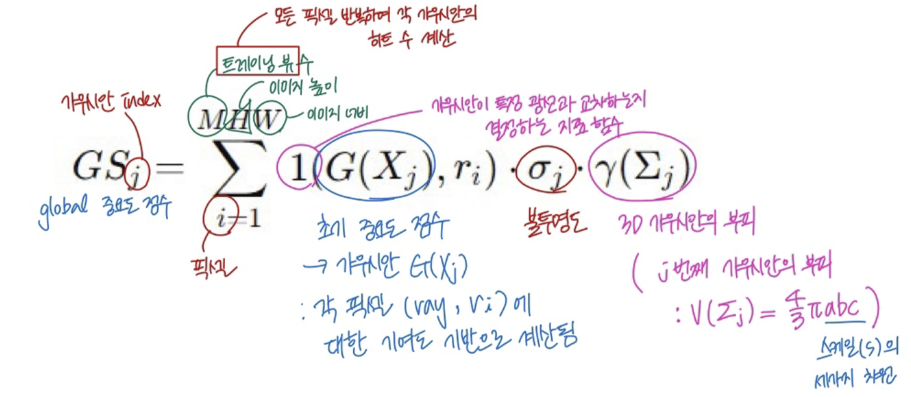 모든 픽셀 반복하여 각 가우시안의
히트 수 계산
트레이닝 뷰 수
이미지 높이
이미지 너비
가우시안 index
가우시안이 특정 광선과 교차하는지
결정하는 지표 함수
MHW
GS_j = ∑ 1(G(X_j), r_i) · σ_j · γ(Σ_j)
i=1
global 중요도 점수
픽셀
초기 중요도 점수
→ 가우시안 G(X_j)
: 각 픽셀 (ray, r_i)에
대한 기여도 기반으로 계산됨
불투명도
3D 가우시안의 부피
( j번째 가우시안의 부피
: V(Σ_j) = 4/3 πabc )
스케일(s)의
세가지 차원